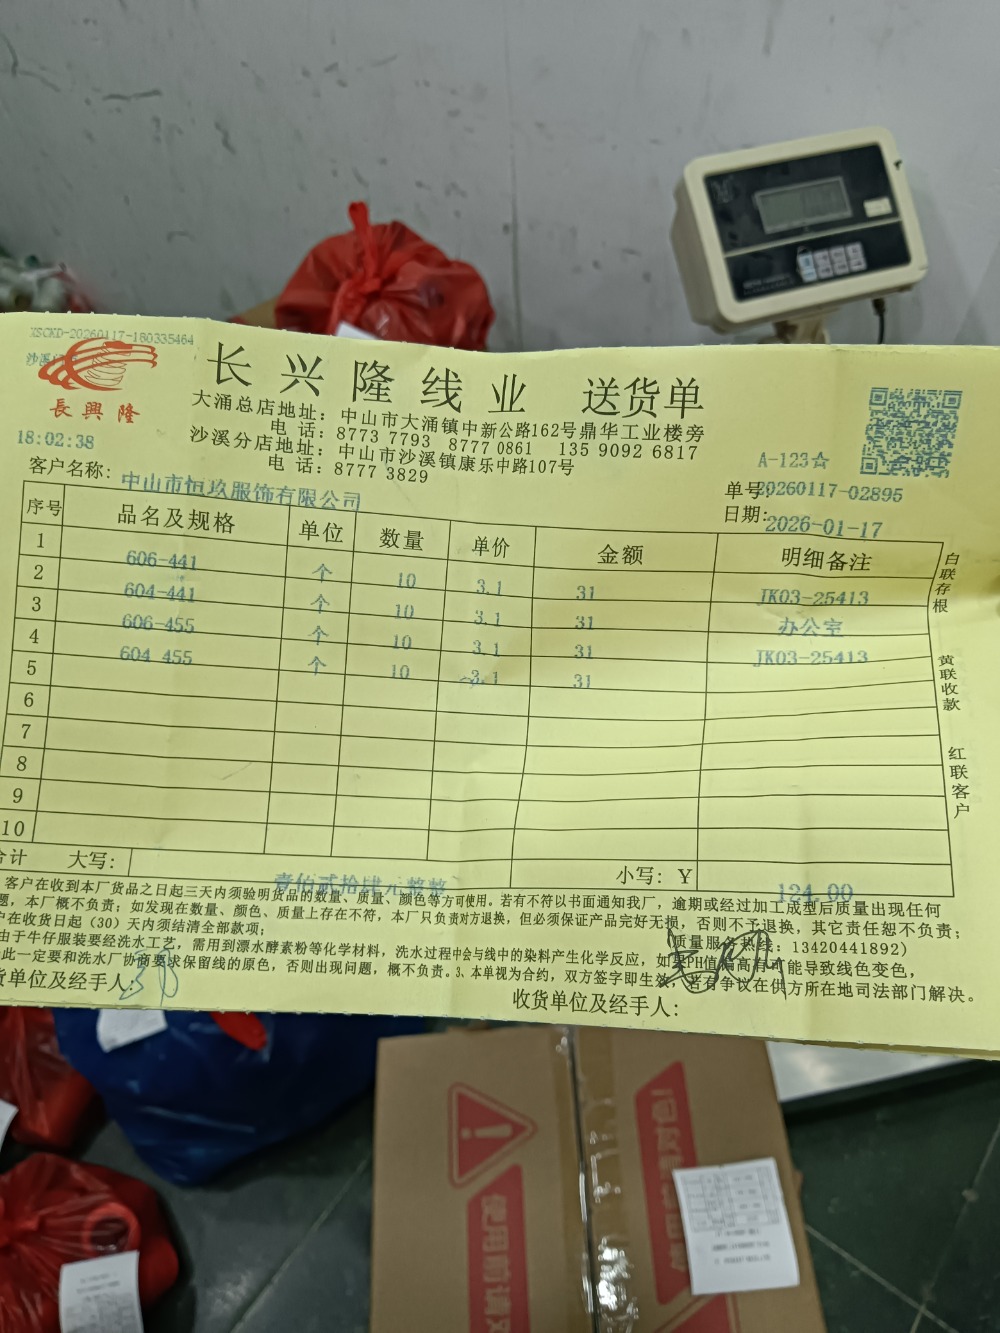 XSCKD-20260117-180335464
沙溪
長興隆
18:02:38
长兴隆线业 送货单
大涌总店地址：中山市大涌镇中新公路162号鼎华工业楼旁
电 话：8773 7793 8777 0861 135 9092 6817
沙溪分店地址：中山市沙溪镇康乐中路107号
电 话：8777 3829
A-123☆
客户名称：中山市恒玖服饰有限公司
单号：20260117-02895
日期：2026-01-17
序号 品名及规格 单位 数量 单价 金额 明细备注
1 606-441 个 10 3.1 31 JK03-25413
2 604-441 个 10 3.1 31 办公室
3 606-455 个 10 3.1 31 JK03-25413
4 604-455 个 10 3.1 31
5
6
7
8
9
10
白联存根
黄联收款
红联客户
合计 大写：壹佰贰拾肆元整整 小写：Y 124.00
客户在收到本厂货品之日起三天内须验明货品的数量、质量、颜色等方可使用。若有不符以书面通知我厂，逾期或经过加工成型后质量出现任何
题，本厂概不负责；如发现在数量、颜色、质量上存在不符，本厂只负责对方退换，但必须保证产品完好无损，否则不予退换，其它责任恕不负责；
户在收货日起（30）天内须结清全部款项；
质量服务热线：13420441892）
由于牛仔服装要经洗水工艺，需用到漂水酵素粉等化学材料，洗水过程中会与线中的染料产生化学反应，如果PH值偏高有可能导致线色变色，
此一定要和洗水厂协商要求保留线的原色，否则出现问题，概不负责。3、本单视为合约，双方签字即生效，若有争议在供方所在地司法部门解决。
货单位及经手人：
收货单位及经手人：